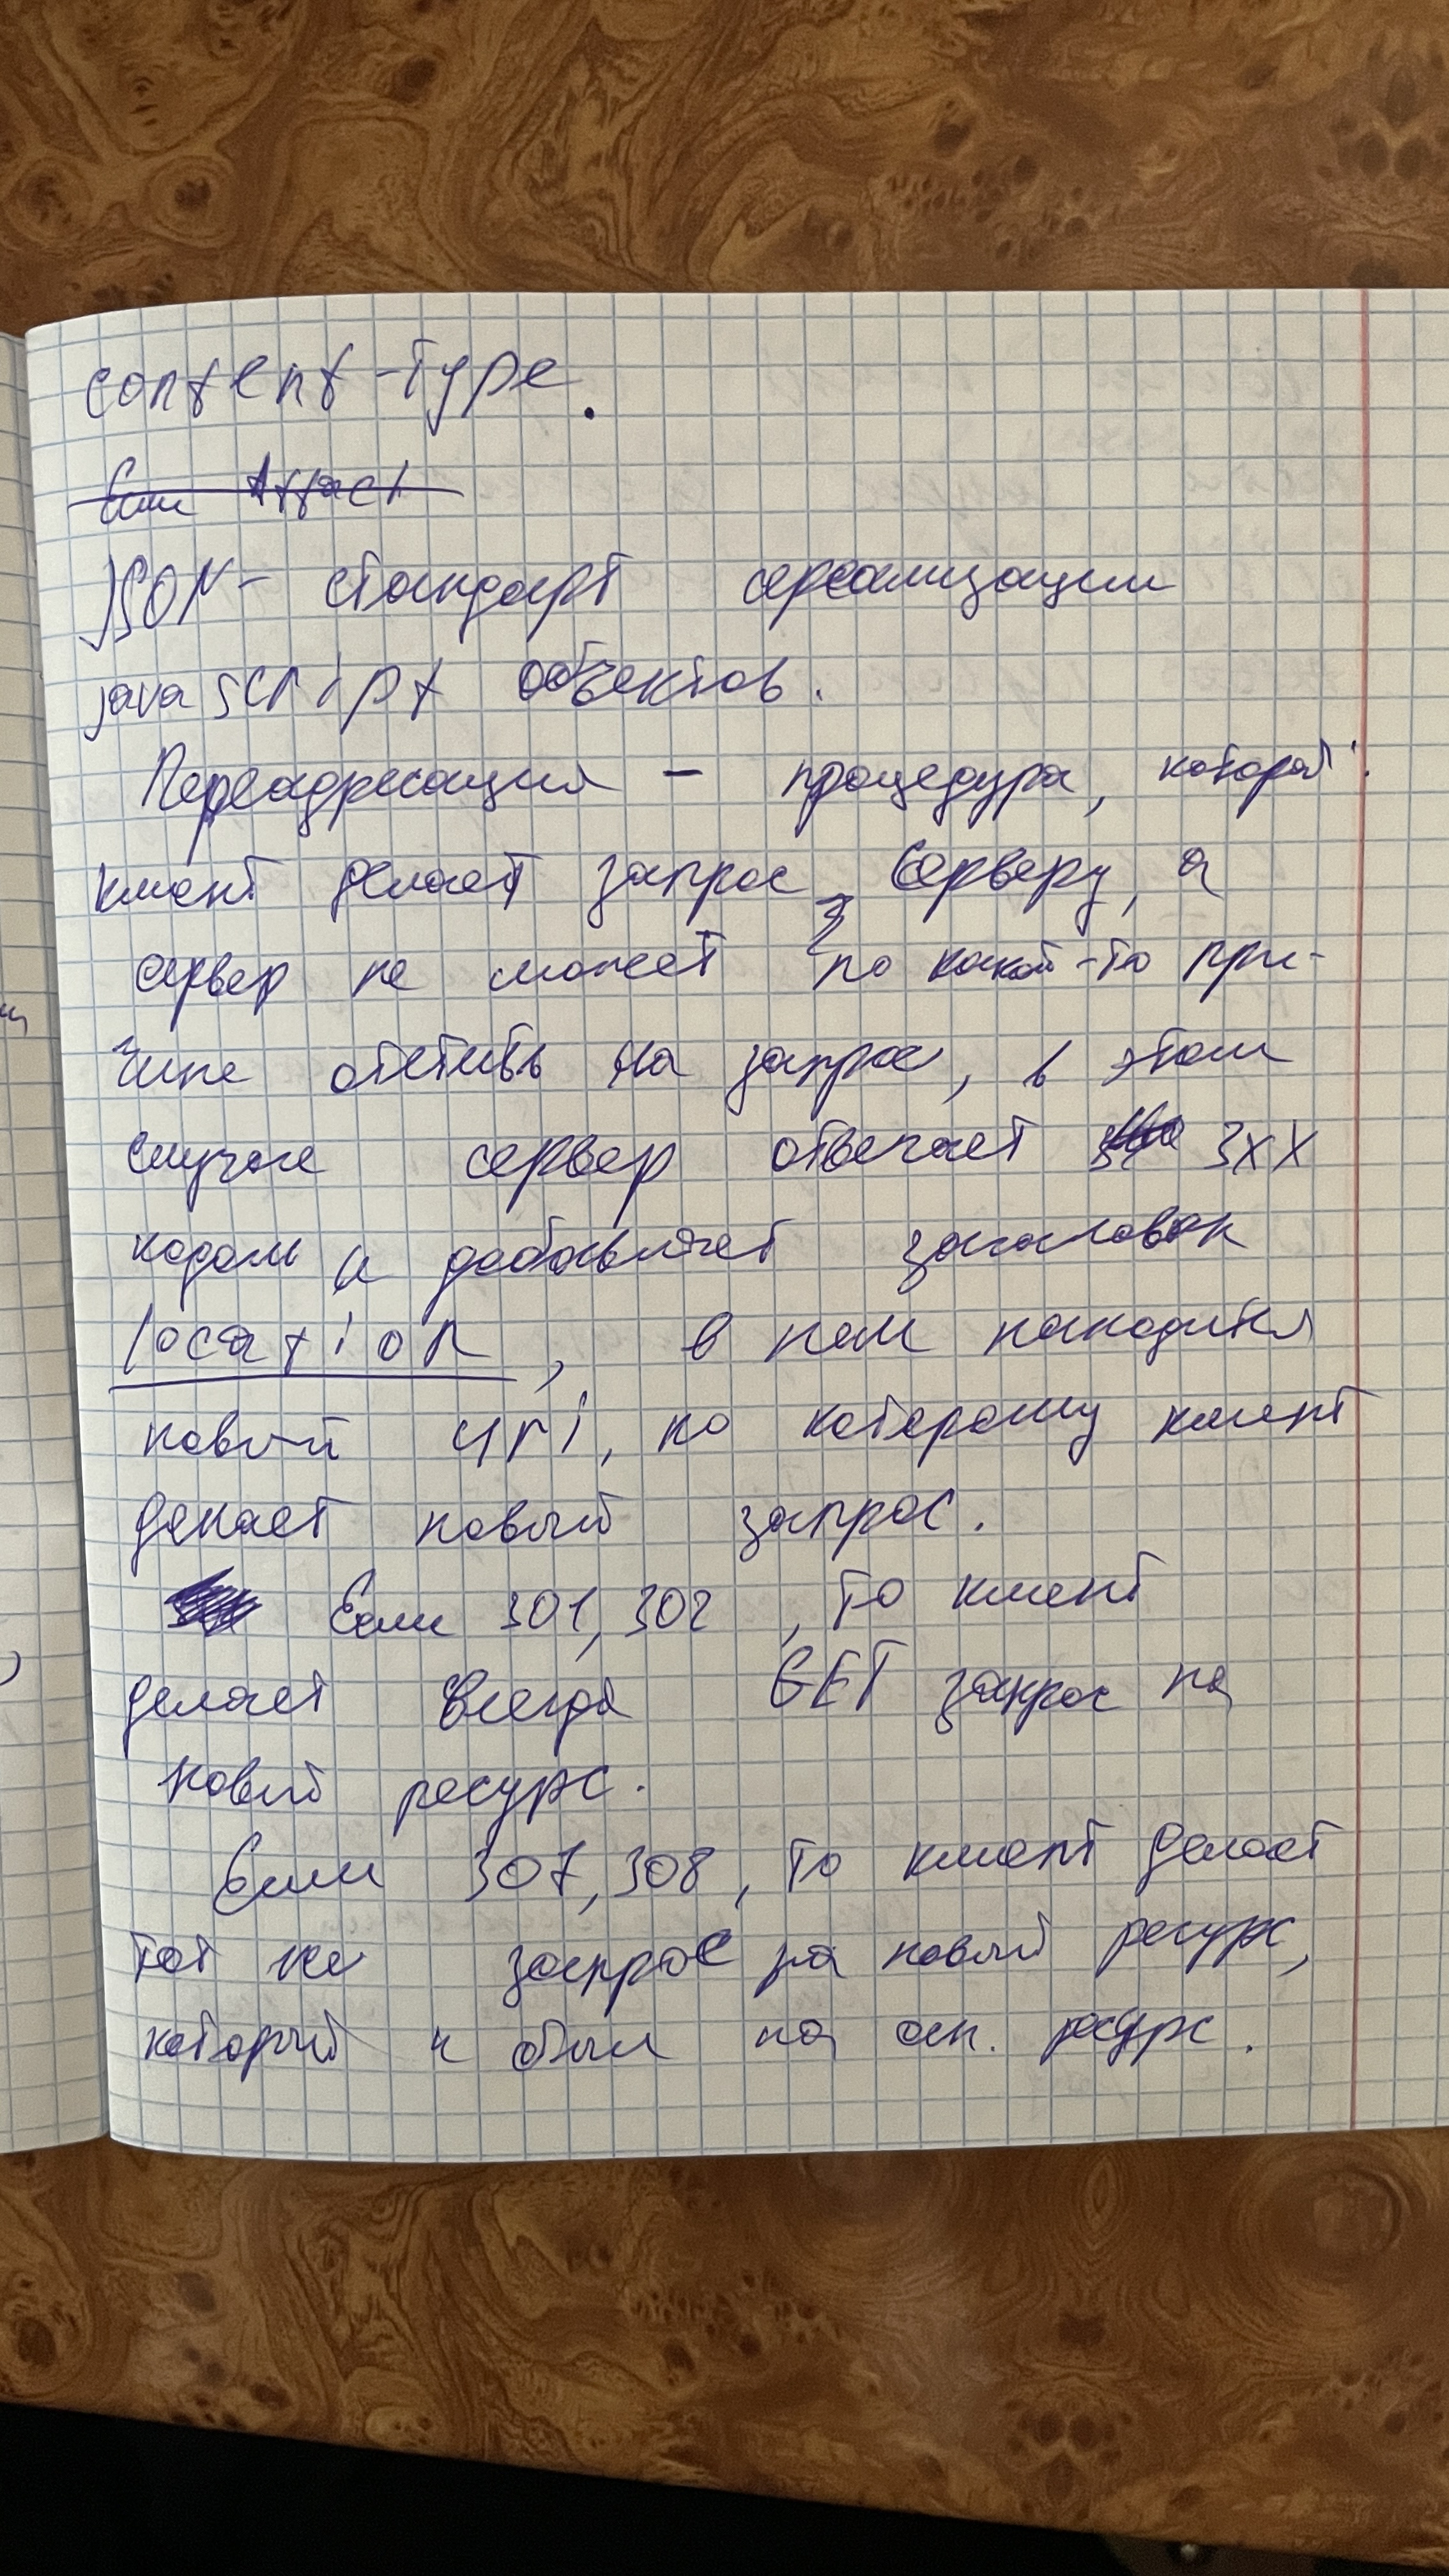 content-type.
JSON - стандарт сереализации
javascript объектов.
Переадресация - процедура, которой
клиент делает запрос серверу, а
сервер не может по какой-то при-
чине ответить на запрос, в этом
случае сервер отвечает 3XX
кодом и добавляет заголовок
location, в нем находится
новый uri, по которому клиент
делает новый запрос.
Если 301, 302, то клиент
делает всегда GET запрос на
новый ресурс.
Если 307, 308, то клиент делает
тот же запрос на новый ресурс,
который и был на осн. ресурс.